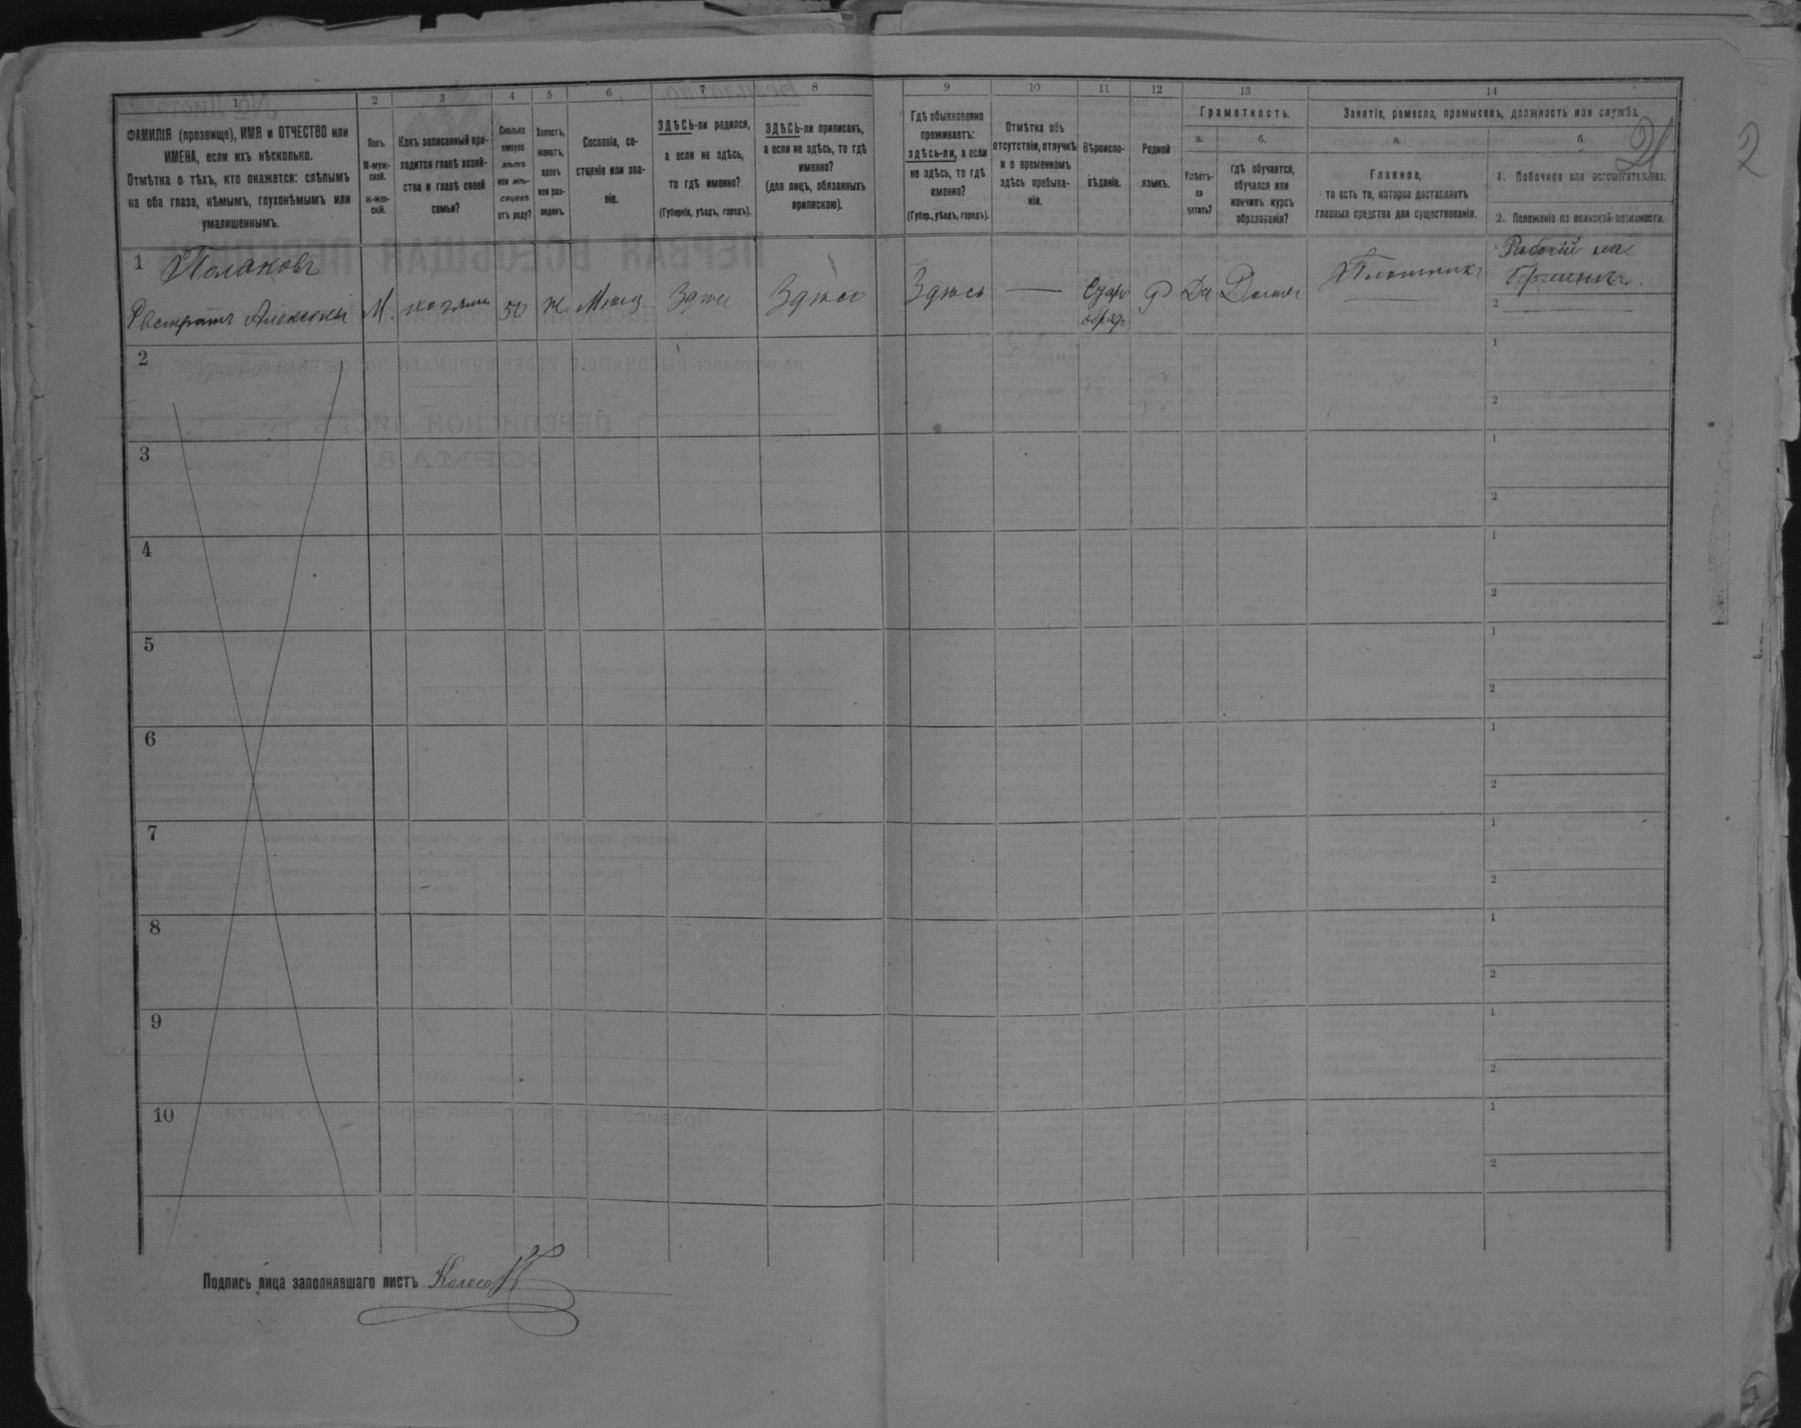 1 2 3 4 5 6 7 8 9 10 11 12 13 14
ФАМИЛІЯ (прозвище), ИМЯ и ОТЧЕСТВО или
ИМЕНА, если ихъ нѣсколько.
Отмѣтка о тѣхъ, кто окажется: слѣпымъ
на оба глаза, нѣмымъ, глухонѣмымъ или
умалишеннымъ.
Полъ.
М-муж-
ской.
Ж-жен-
скій.
Какъ записанный при-
ходится главѣ хозяй-
ства и главѣ своей
семьи?
Сколько
минуло
лѣтъ
или мѣ-
сяцевъ
отъ роду?
Холостъ,
женатъ,
вдовъ
или раз-
веденъ.
Сословіе, со-
стояніе или зва-
ніе.
ЗДѢСЬ-ли родился,
а если не здѣсь,
то гдѣ именно?
(Губернія, уѣздъ, городъ).
ЗДѢСЬ-ли приписанъ,
а если не здѣсь, то гдѣ
именно?
(для лицъ, обязанныхъ
припискою).
Гдѣ обыкновенно
проживаетъ:
здѣсь-ли, а если
не здѣсь, то гдѣ
именно?
(Губер., уѣздъ, городъ).
Отмѣтка объ
отсутствіи, отлучкѣ
и о временномъ
здѣсь пребыва-
ніи.
Вѣроиспо-
вѣданіе.
Родной
языкъ.
Грамотность.
а.
Умѣетъ-
ли
читать?
б.
Гдѣ обучается,
обучался или
кончилъ курсъ
образованія?
Занятіе, ремесло, промыселъ, должность или служба.
а.
Главное,
то есть то, которое доставляетъ
главныя средства для существованія.
б.
1. Побочное или вспомогательное.
2. Положеніе по воинской повинности.
2
1 Полаковъ
М. хозяин 50 ж Мѣщ. Здѣсь Здѣсь Здѣсь — Старо
обряд. Р Да Дома Плотникъ
Рабочій на
2
2 1
2
3 1
2
4 1
2
5 1
2
6 1
2
7 1
2
8 1
2
9 1
2
10 1
2
Подпись лица заполнявшаго листъ